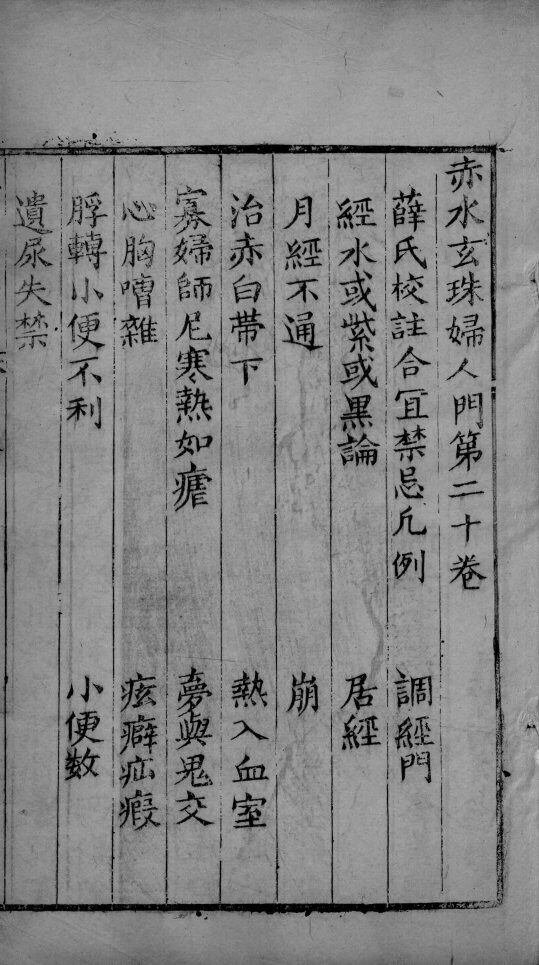 赤水玄珠婦人門第二十卷
薛氏校註合宜禁忌凡例　調經門
經水或紫或黑論　居經
月經不通　崩
治赤白帶下　熱入血室
寡婦師尼寒熱如瘧　夢與鬼交
心胸嘈雜　痃癖疝瘕
脬轉小便不利　小便数
遺尿失禁